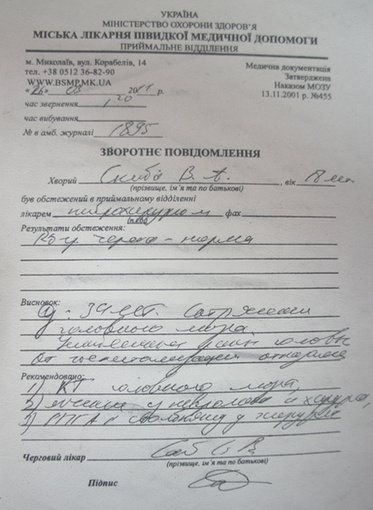 УКРАЇНА
МІНІСТЕРСТВО ОХОРОНИ ЗДОРОВ'Я
МІСЬКА ЛІКАРНЯ ШВИДКОЇ МЕДИЧНОЇ ДОПОМОГИ
ПРИЙМАЛЬНЕ ВІДДІЛЕННЯ
м. Миколаїв, вул. Корабелів, 14
тел. +38 0512 36-82-90
WWW.BSMP.MK.UA
Медична документація
Затверджена
Наказом МОЗУ
13.11.2001 р. №455
р.
час звернення 1 20
час вибування
№ в амб. журналі 1895
ЗВОРОТНЄ ПОВІДОМЛЕННЯ
Хворий Скиба В. А. , вік 18
(прізвище, ім'я та по батькові)
був обстежений в приймальному відділенні
лікарем нейрохирургом фах
Результати обстеження:
черепа - норма
Висновок:
ЗЧМТ. Сотрясение
головного мозга.
раны головы
От госпитализации отказался
Рекомендовано:
1) КТ головного мозга,
2) лечение у невролога и хирурга,
3)
Черговий лікар
(прізвище, ім'я та по батькові)
Підпис